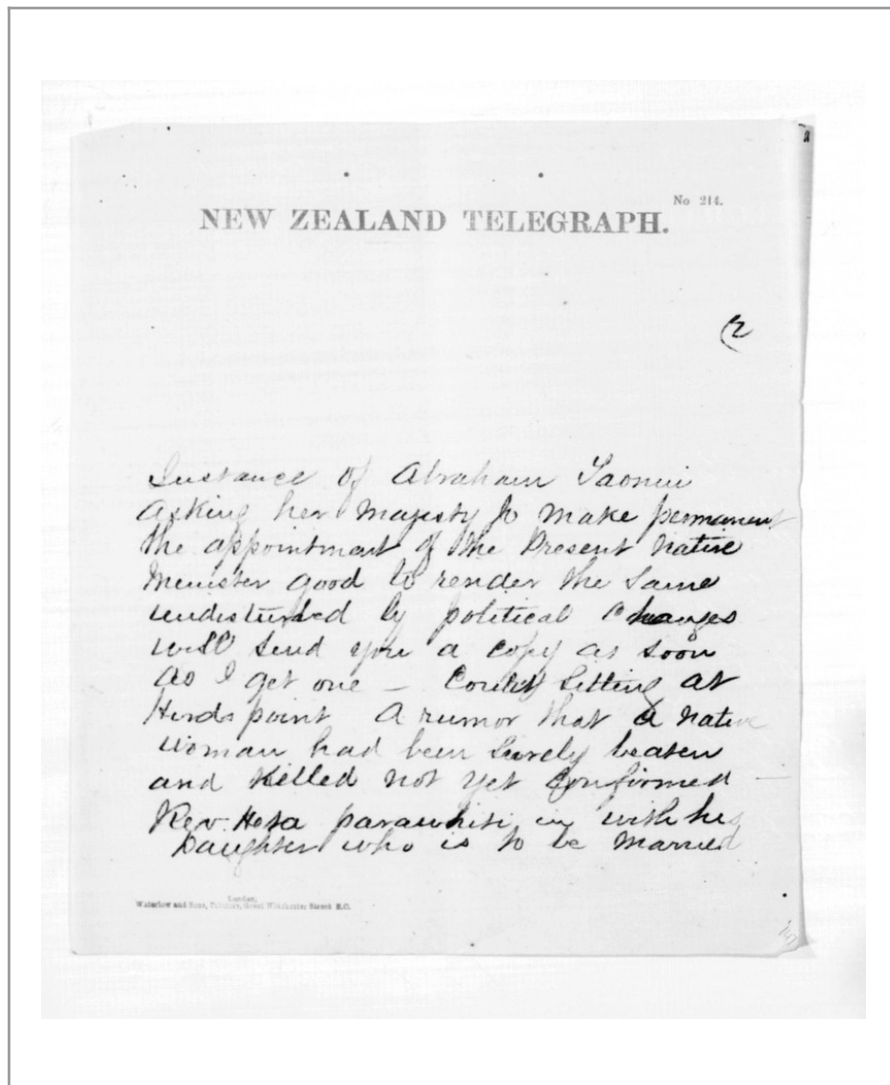 No 214.
NEW ZEALAND TELEGRAPH.
(2
Instance of Abraham Taonui
asking her Majesty to make permanent
the appointment of the Present native
Minister good to render the same
undisturbed by political Changes
will send you a copy as soon
as I get one — Court sitting at
Herds point A rumor that a native
woman had been beaten
and Killed not yet Confirmed —
Rev. in with his
Daughter who is to be Married
London;
Waterlow and Sons, Printers, Great Winchester Street E.C.